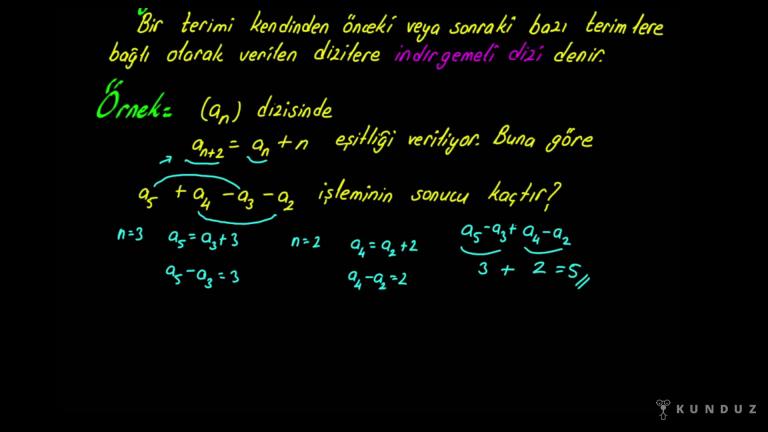 Bir terimi kendinden önceki veya sonraki bazı terimlere
bağlı olarak verilen dizilere indirgemeli dizi denir.
Örnek= (aₙ) dizisinde
aₙ₊₂ = aₙ + n eşitliği veriliyor. Buna göre
a₅ + a₄ - a₃ - a₂ işleminin sonucu kaçtır?
n=3 a₅ = a₃+3 n=2 a₄ = a₂+2 a₅-a₃+a₄-a₂
a₅-a₃=3 a₄-a₂=2 3 + 2 =5//
KUNDUZ